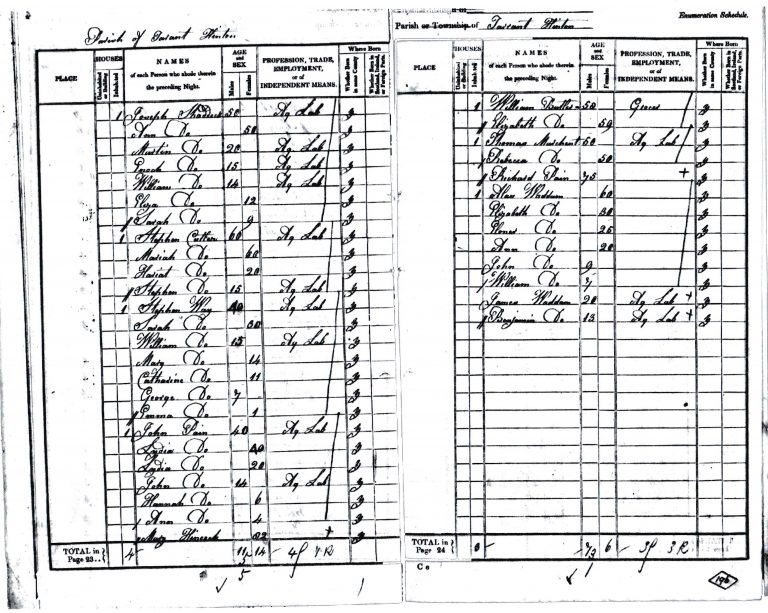 Parish of Tarrant Hinton
PLACE
HOUSES
Uninhabited or Building
Inhabited
NAMES of each Person who abode therein the preceding Night.
AGE and SEX
Males
Females
PROFESSION, TRADE, EMPLOYMENT, or of INDEPENDENT MEANS.
Where Born
Whether Born in same County
Whether Born in Scotland, Ireland, or Foreign Parts.
1 Joseph 50 Ag Lab y
Ann Do 50 y
Martin Do 20 Ag Lab y
Enoch Do 15 Ag Lab y
William Do 14 Ag Lab y
Eliza Do 12 y
Sarah Do 9 y
1 Stephen 60 Ag Lab y
Mariah Do 60 y
Hariat Do 20 y
Stephen Do 15 Ag Lab y
1 Stephen Way 40 Ag Lab y
Sarah Do 30 y
William Do 15 Ag Lab y
Mary Do 14 y
Catharine Do 11 y
George Do 7 y
Emma Do 1 y
1 John Pain 40 Ag Lab y
Lydia Do 40 y
Lydia Do 20 y
John Do 14 Ag Lab y
Hannah Do 6 y
Ann Do 4 y
Mary + y
TOTAL in Page 23 4 11 14
5
Enumeration Schedule.
Parish or Township of Tarrant Hinton
PLACE
HOUSES
Uninhabited or Building
Inhabited
NAMES of each Person who abode therein the preceding Night.
AGE and SEX
Males
Females
PROFESSION, TRADE, EMPLOYMENT, or of INDEPENDENT MEANS.
Where Born
Whether Born in same County
Whether Born in Scotland, Ireland, or Foreign Parts.
1 William 50 Grocer y
Elizabeth Do 59 y
1 Thomas Marchent 50 Ag Lab y
Rebecca Do 50 y
Richard Pain 75 + y
1 60 y
Elizabeth Do 30 y
Do 25 y
Ann Do 20 y
John Do 9 y
William Do 7 y
James 20 Ag Lab + y
Benjamin Do 13 Ag Lab + y
TOTAL in Page 24 7 6
1
C c
196